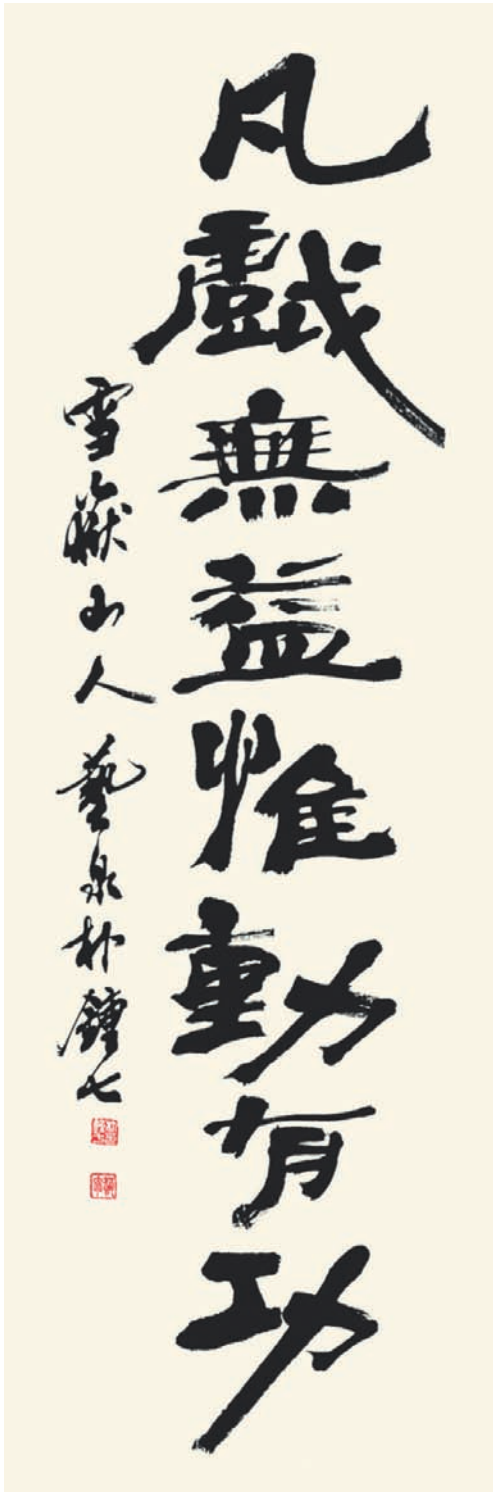 凡戲無益惟動有功
雪嶽山人 藝泉朴鍾七